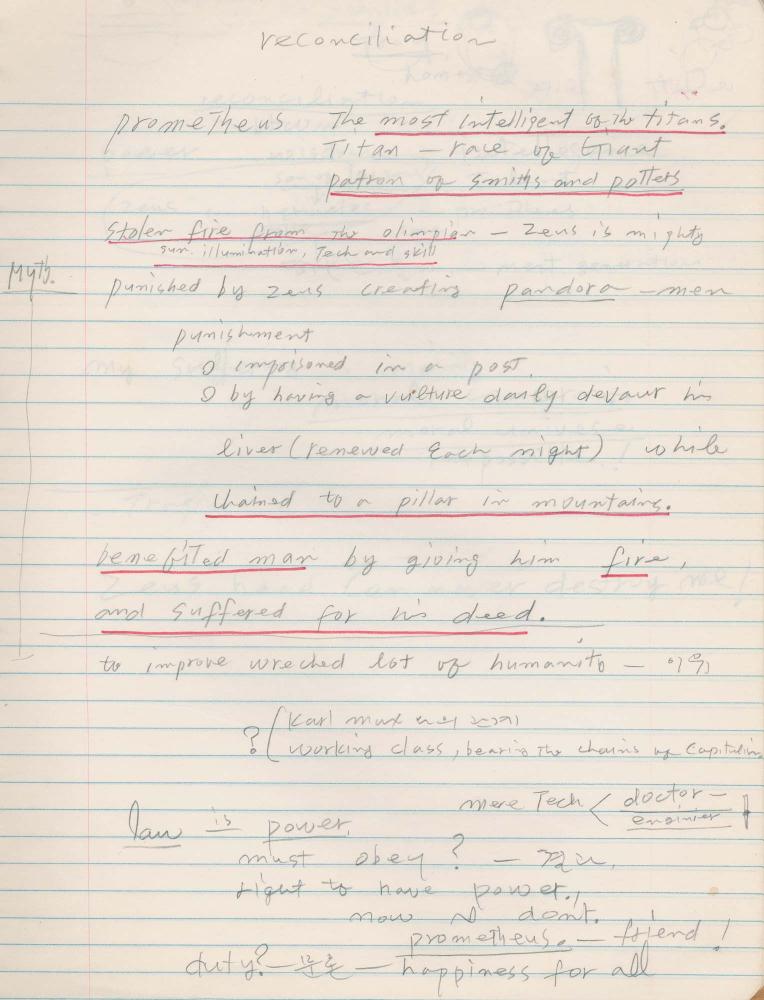 reconciliation
prometheus The most intelligent of the titans.
Titan — race of Giant
patron of smiths and potters
stolen fire from the olimpian — Zeus is mighty
sun. illumination, Tech and skill
Myth.
punished by zeus creating pandora — men
punishment
o imprisoned in a post.
o by having a vulture daily devaur his
liver (renewed Each night) while
chained to a pillar in mountains.
benefited man by giving him fire,
and suffered for his deed.
to improve wreched lot of humanity —
? ( Karl max
working class, bearing the chains of Capitalism
mere Tech < doctor —
enginier
law is power.
must obey ? —
right to have power.,
now I dont.
prometheus. — friend !
duty? — — happiness for all